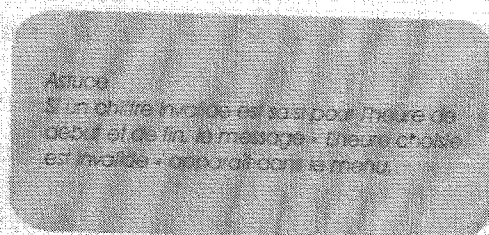 Astuce
Si un chiffre invalide est saisi pour l'heure de
début et de fin, le message « L'heure choisie
est invalide » apparaît dans le menu.